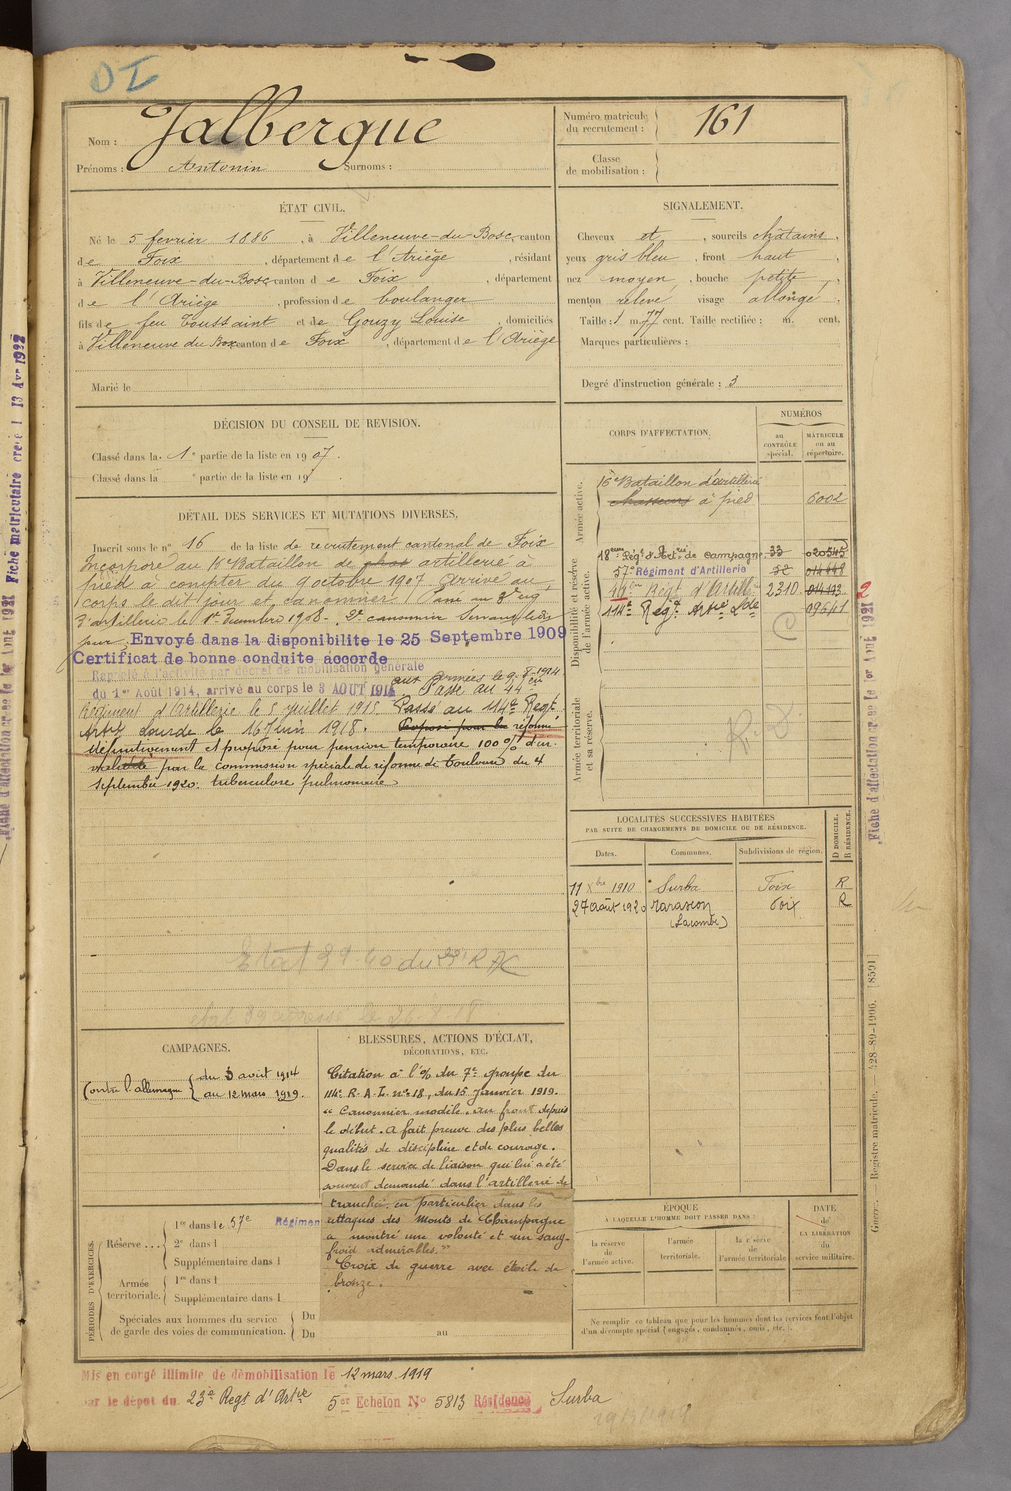 DI
Nom : Jalbergue
Prénoms : Antonin Surnoms :
Numéro matricule du recrutement : 161
Classe de mobilisation :
ÉTAT CIVIL.
Né le 5 fevrier 1886, à Villeneuve-du-Bosc, canton
de Foix, département de l'Ariège, résidant
à Villeneuve-du-Bosc canton de Foix, département
de l'Ariège, profession de boulanger
fils de feu Toussaint et de Gouzy Louise, domiciliés
à Villeneuve du Bosc canton de Foix, département de l'Ariège
Marié le
SIGNALEMENT.
Cheveux et, sourcils châtains,
yeux gris bleu, front haut,
nez moyen, bouche petite,
menton relevé, visage allongé,
Taille : 1 m. 77 cent. Taille rectifiée : m. cent.
Marques particulières :
Degré d'instruction générale : 3
DÉCISION DU CONSEIL DE REVISION.
Classé dans la 1e partie de la liste en 1907.
Classé dans la e partie de la liste en 19
DÉTAIL DES SERVICES ET MUTATIONS DIVERSES.
Inscrit sous le n° 16 de la liste de recrutement cantonal de Foix
Incorporé au 15e Bataillon de artillerie à
pied à compter du 9 octobre 1907 Arrivé au
corps le dit jour et canonnier Passé au 3e rég
d'artillerie le 1er Decembre 1908. 2e canonnier Servant le dit
jour. Envoyé dans la disponibilite le 25 Septembre 1909
Certificat de bonne conduite accorde
Rappelé à l'activité par décret de mobilisation générale
du 1er Août 1914, arrivé au corps le 3 AOUT 1914 aux armées le 9-8-1914
Passé au 44em
Régiment d'Artillerie le 5 juillet 1915 Passé au 114e Regt
Artie Lourde le 16 Juin 1918. Proposé pour la réformé
définitivement et proposé pour pension temporaire 100 % d'in-
validité par la commission spéciale de réforme de Toulouse du 4
septembre 1920. tuberculose pulmonaire
CORPS D'AFFECTATION.
NUMÉROS
au CONTRÔLE spécial.
MATRICULE ou au répertoire.
Armée active.
15e Bataillon d'artillerie
chasseurs à pied 6002
Disponibilité et réserve de l'armée active.
18eme Régt d'Artrie de campagne 33 020545
57e Régiment d'Artillerie
44em Régt d'Artill 2310
114e Regt Artie Lde 09541
Armée territoriale et sa réserve.
R.D
LOCALITÉS SUCCESSIVES HABITÉES
PAR SUITE DE CHANGEMENTS DE DOMICILE OU DE RÉSIDENCE.
Dates. Communes. Subdivisions de région. D DOMICILE. R RÉSIDENCE.
11 Xbre 1910 Surba Foix R
27 août 1920 Tarascon Foix R
(Lacombe)
Etat 39-40 du 23e R AC
CAMPAGNES.
Contre l'allemagne du 3 août 1914
au 12 mars 1919.
BLESSURES, ACTIONS D'ÉCLAT,
DÉCORATIONS, ETC.
Citation à l'% du 7e groupe du
114e R.A.L. n° 18, du 15 Janvier 1919.
"Canonnier modèle. au front depuis
le début. a fait preuve des plus belles
qualités de discipline et de courage.
Dans le service de liaison qui lui a été
souvent demandé dans l'artillerie de
tranchée, en particulier dans les
attaques des Monts de Champagne
a montré une volonté et un sang-
froid admirables."
Croix de guerre avec étoile de
bronze.
PÉRIODES D'EXERCICES.
Réserve ... 1re dans le 57e Régimen
2e dans l
Supplémentaire dans l
Armée territoriale. 1re dans l
Supplémentaire dans l
Spéciales aux hommes du service
de garde des voies de communication. Du
Du au
ÉPOQUE
A LAQUELLE L'HOMME DOIT PASSER DANS :
la réserve de l'armée active.
l'armée territoriale.
la réserve de l'armée territoriale
DATE
de
LA LIBÉRATION
du
service militaire.
Ne remplir ce tableau que pour les hommes dont les services font l'objet
d'un décompte spécial (engagés, condamnés, omis, etc.).
Mis en congé illimité de démobilisation le 12 mars 1919
par le dépôt du 23e Regt d'Artie 5er Echelon N° 5813 Résidence Surba
19/3/1919
Fiche matriculaire créée l 13 Avr 1932
Fiche d'affectation créée le 1er Août 1921
Guerre. — Registre matricule. — 428-89-1906. [8591]